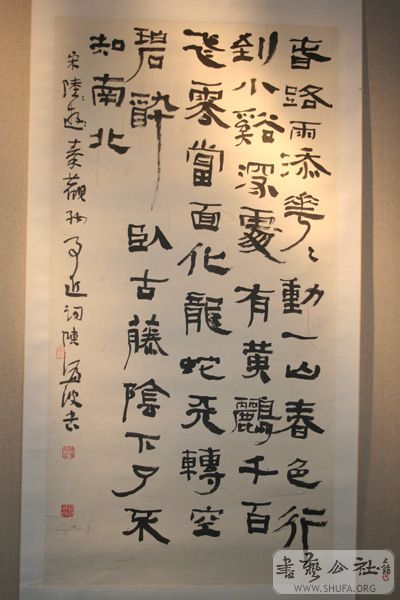 春路雨添花〻動一山春色行
到小谿深處有黃鸝千百
飛雲當面化龍蛇夭轉空
碧醉臥古藤陰下了不
知南北
宋陸遊秦觀好事近詞陳書
書藝公社
WWW.SHUFA.ORG